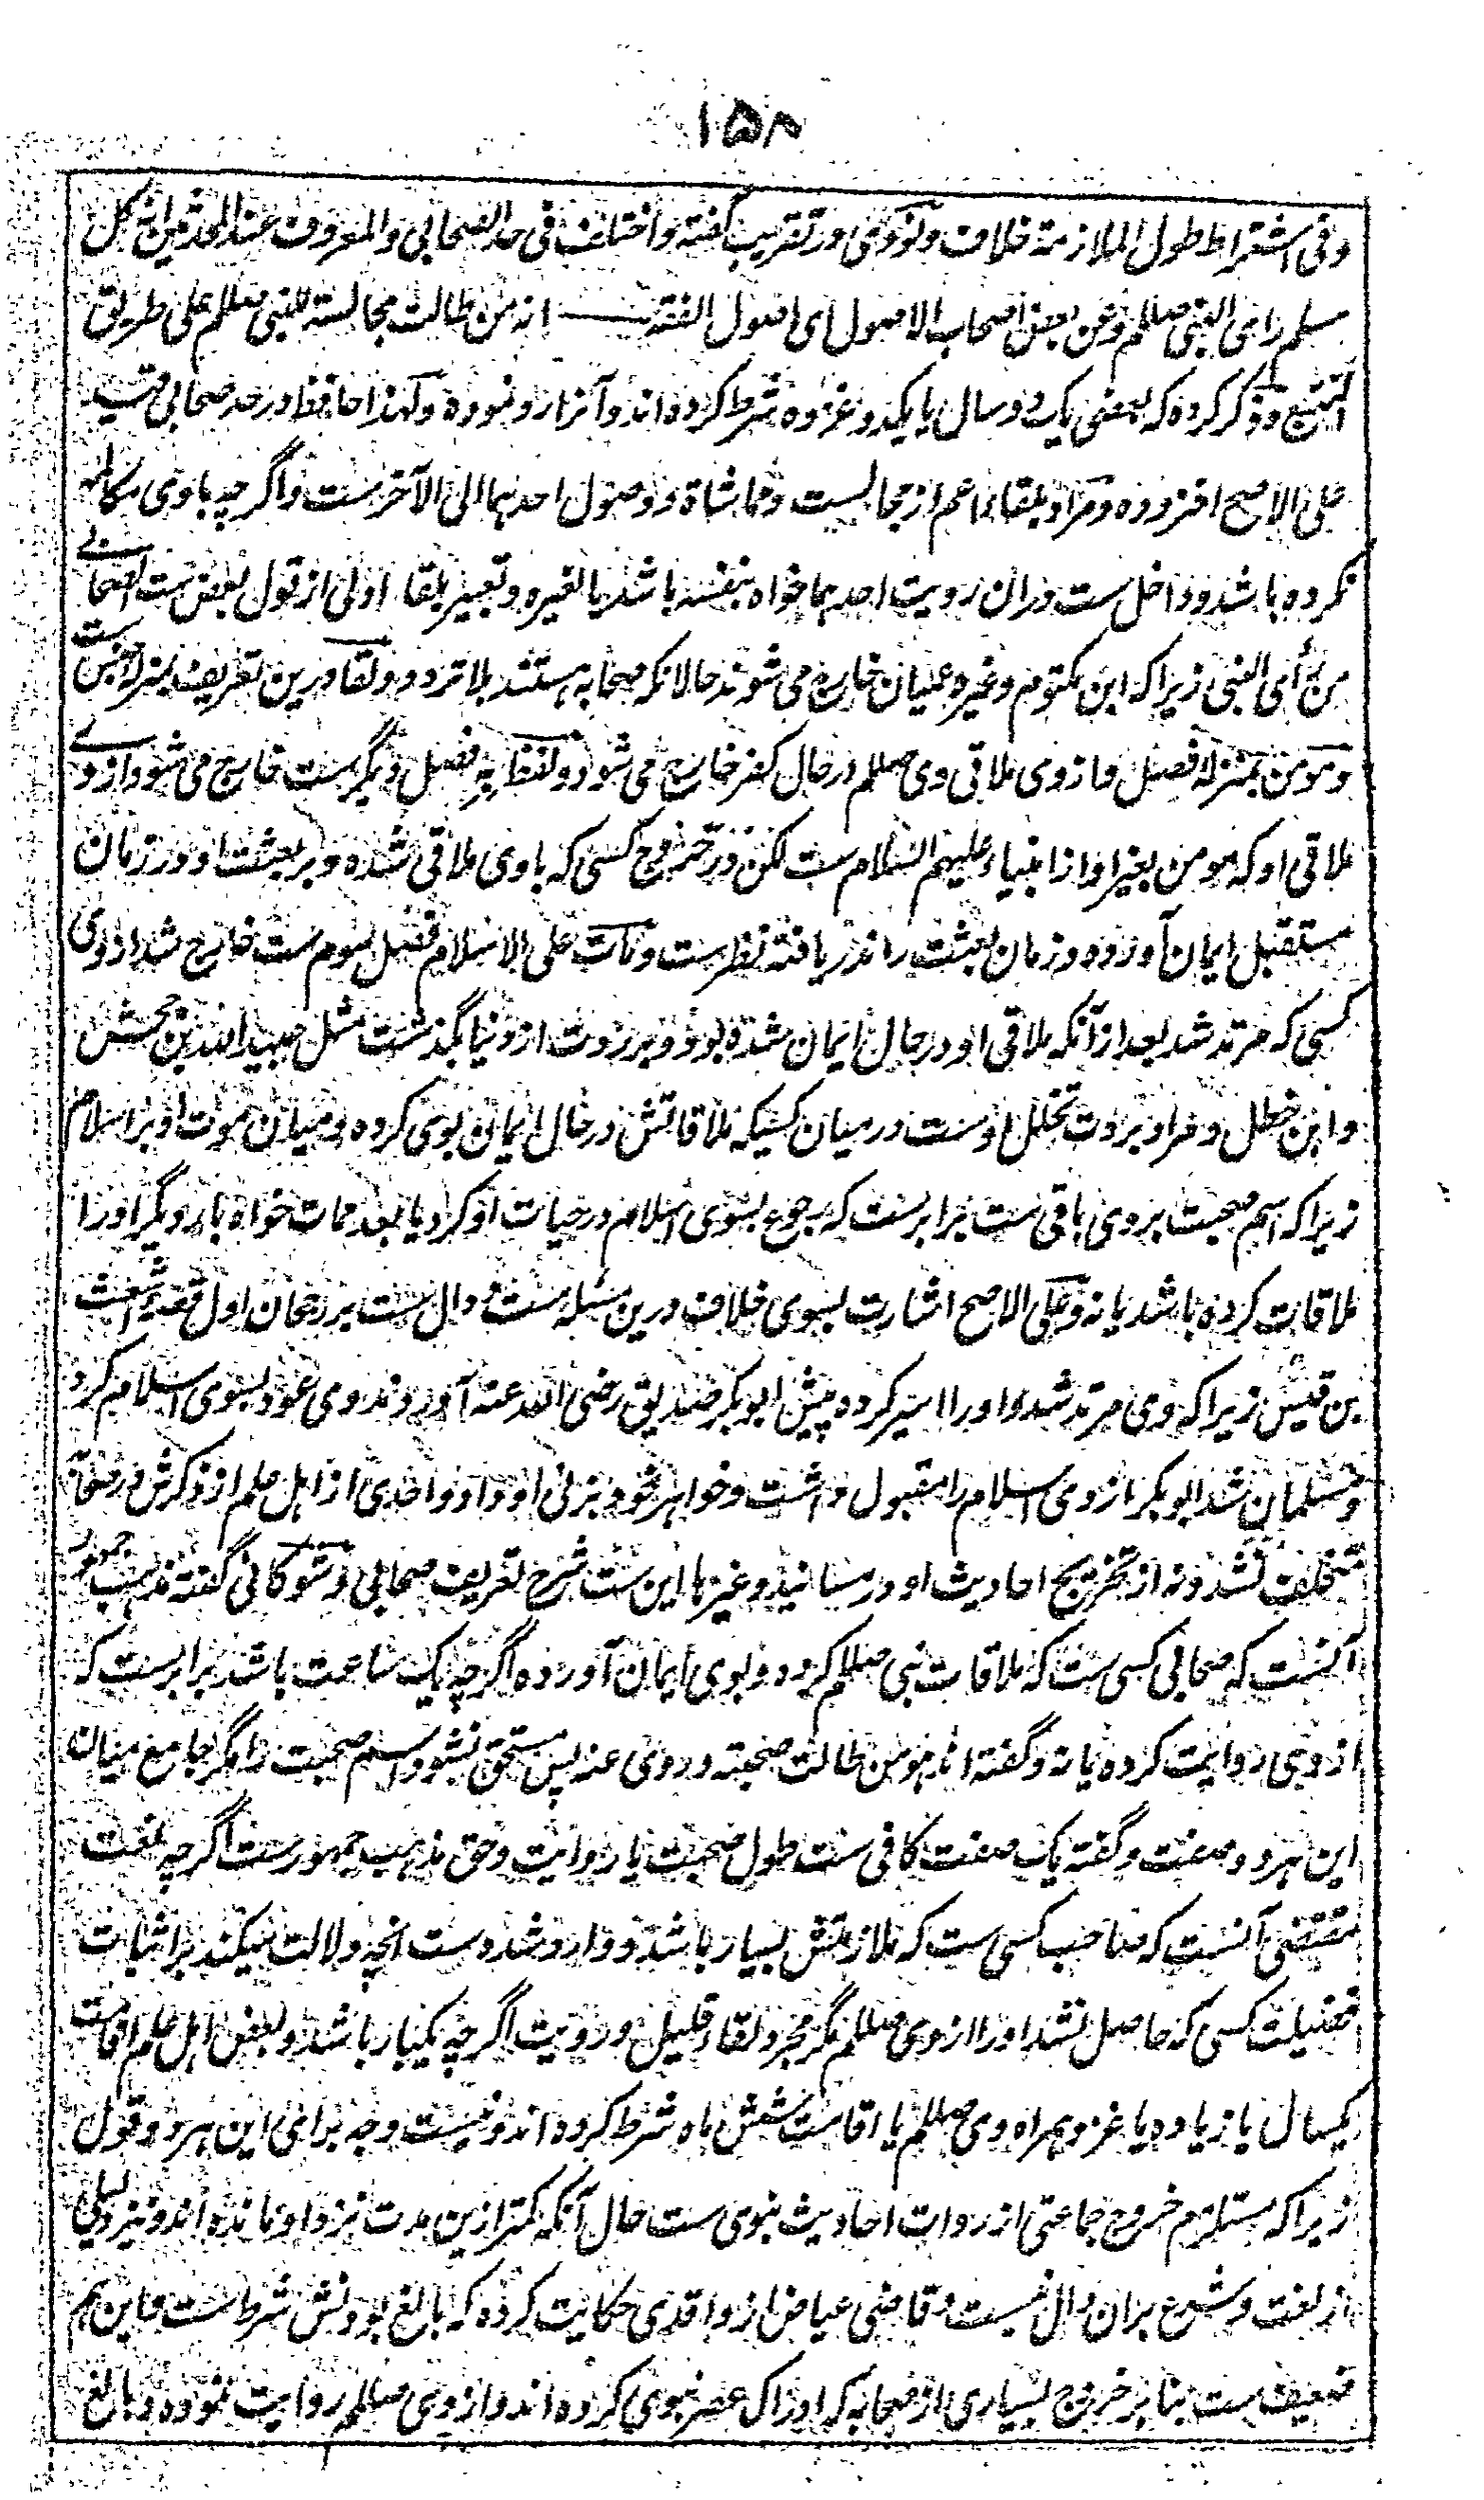 ۱۵۸
وفی اشتراط طول الملازمة خلاف ونووی در تقریب گفته واختلف فی حد الصحابی والمعروف عند المحدثین انه کل
مسلم رای النبی صللم وعن بعض اصحاب الاصول ای اصول الفقه انه من طالت مجالسته للنبی صللم علی طریق
التتبع وذکر کرده که بعضی یک دو سال یا یکدو غزوه شرط کرده اند وآنرا رد نموده ولهذا حافظ در حد صحابی قید
علی الاصح افزوده ومراد بلقا اعم از مجالست ومماشاة ووصول احدهما الی الآخرست واگرچه باوی مکالمه
نکرده باشد وداخل ست دران رویت احدهما خواه بنفسه باشد یا لغیره وتعبیر بلقا اولی از قول بعض ست الصحابی
من رأی النبی زیرا که ابن مکتوم وغیره عمیان خارج می شوند حالانکه صحابه هستند بلا تردد ولقا درین تعریف بمنزله جنس ست
ومومن بمنزله فصل وازوی ملاقی وی صللم در حال کفر خارج می شود ولفظ به فصل دیگرست خارج می شود ازوے
ملاقی او که مومن بغیر او از انبیاء علیهم السلام ست لکن در خروج کسی که باوی ملاقی شده وبر بعثت او در زمان
مستقبل ایمان آورده وزمان بعثت را ندریافته نظرست ومات علی الاسلام فصل سوم ست خارج شد ازوی
کسی که مرتد شد بعد ازآنکه ملاقی او در حال ایمان شده بود وبر ردت از دنیا بگذشت مثل عبیدالله بن جحش
وابن خطل ومراد بردت تخلل اوست درمیان کسیکه ملاقاتش در حال ایمان بوی کرده ومیان موت او بر اسلام
زیرا که اسم صحبت بروی باقی ست برابرست که رجوع بسوی اسلام در حیات او کرد یا بعد ممات خواه بار دیگر اورا
ملاقات کرده باشد یا نه وعلی الاصح اشارت بسوی خلاف درین مسئله ست ودال ست بر رجحان اول قصه اشعث
بن قیس زیرا که وی مرتد شد واورا اسیر کرده پیش ابوبکر صدیق رضی الله عنه آوردند ووی عود بسوی اسلام کرد
ومسلمان شد ابوبکر ازوی اسلام را مقبول داشت وخواهر خود بزنی او داد واحدی از اهل علم از ذکرش در صحابه
متخلف نشد ونه از تخریج احادیث او در مسانید وغیرها این ست شرح تعریف صحابی وشوکانی گفته مذهب جمهور
آنست که صحابی کسی ست که ملاقات نبی صللم کرده وبوی ایمان آورده اگرچه یک ساعت باشد برابرست که
ازوی روایت کرده یا نه وگفته اند هو من طالت صحبته وروی عنه پس مستحق نشود اسم صحبت را مگر جامع میان
این هر دو صفت وگفته یک صفت کافی ست طول صحبت یا روایت وحق مذهب جمهورست اگرچه لغت
مقتضی آنست که صاحب کسی ست که ملازمتش بسیار باشد ووارد شده ست انچه دلالت میکند بر اثبات
فضیلت کسی که حاصل نشد اورا ازوی صللم مگر مجرد لقاء قلیل ورویت اگرچه یکبار باشد وبعض اهل علم اقامت
یکسال یا زیاده یا غزو همراه وی صللم یا اقامت شش ماه شرط کرده اند ونیست وجه برای این هر دو قول
زیرا که مستلزم خروج جماعتی از روات احادیث نبوی ست حال آنکه کمتر ازین مدت نزد او مانده اند ونیز دلیلی
از لغت وشرع بران دال نیست وقاضی عیاض از واقدی حکایت کرده که بالغ بودنش شرط ست واین هم
ضعیف ست بنابر خروج بسیاری از صحابه که ادراک عصر نبوی کرده اند وازوی صللم روایت نموده وبالغ